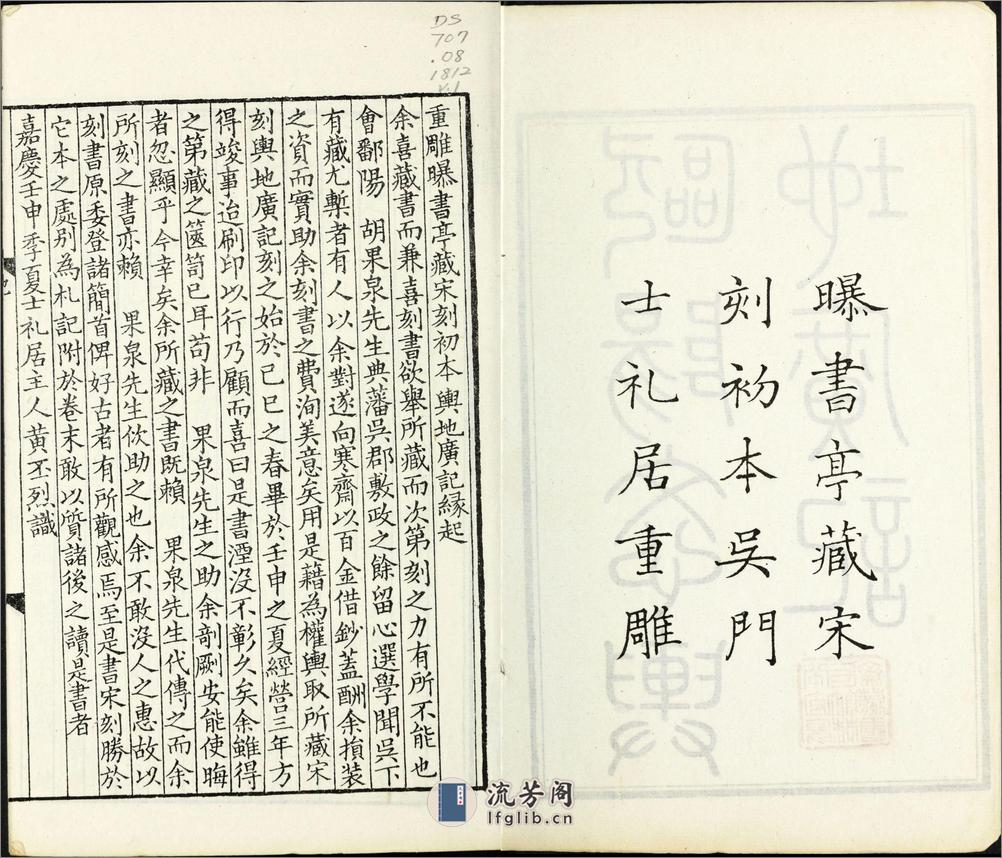 曝書亭藏宋
刻初本吳門
士礼居重雕
DS
707
.08
1812
v.1
重雕曝書亭藏宋刻初本輿地廣記緣起
余喜藏書而兼喜刻書欲舉所藏而次第刻之力有所不能也
會鄱陽 胡果泉先生典藩吳郡敷政之餘留心選學聞吳下
有藏尤槧者有人以余對遂向寒齋以百金借鈔蓋酬余損裝
之資而實助余刻書之費洵美意矣用是藉為權輿取所藏宋
刻輿地廣記刻之始於己巳之春畢於壬申之夏經營三年方
得竣事迨刷印以行乃顧而喜曰是書湮沒不彰久矣余雖得
之第藏之篋笥已耳苟非 果泉先生之助余剞劂安能使晦
者忽顯乎今幸矣余所藏之書既賴 果泉先生代傳之而余
所刻之書亦賴 果泉先生佽助之也余不敢沒人之惠故以
刻書原委登諸簡首俾好古者有所觀感焉至是書宋刻勝於
它本之處別為札記附於卷末敢以質諸後之讀是書者
嘉慶壬申季夏士礼居主人黃丕烈識
流芳阁
lfglib.cn